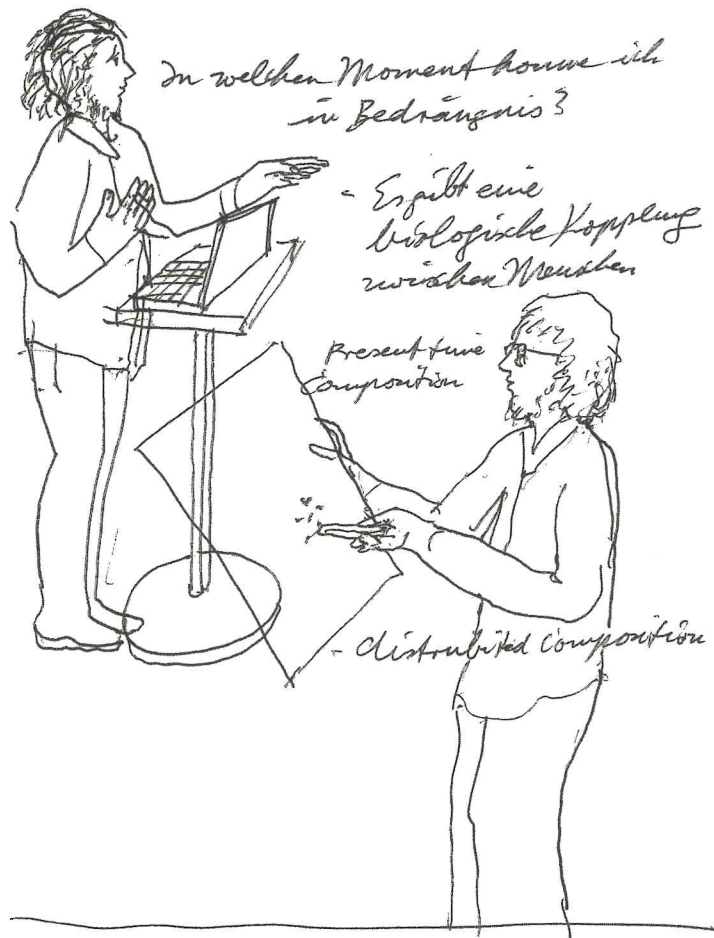 In welchen Moment komme ich
in Bedrängnis?
- Es gibt eine
biologische Kopplung
zwischen Menschen
Present time
Composition
- distrubited Composition